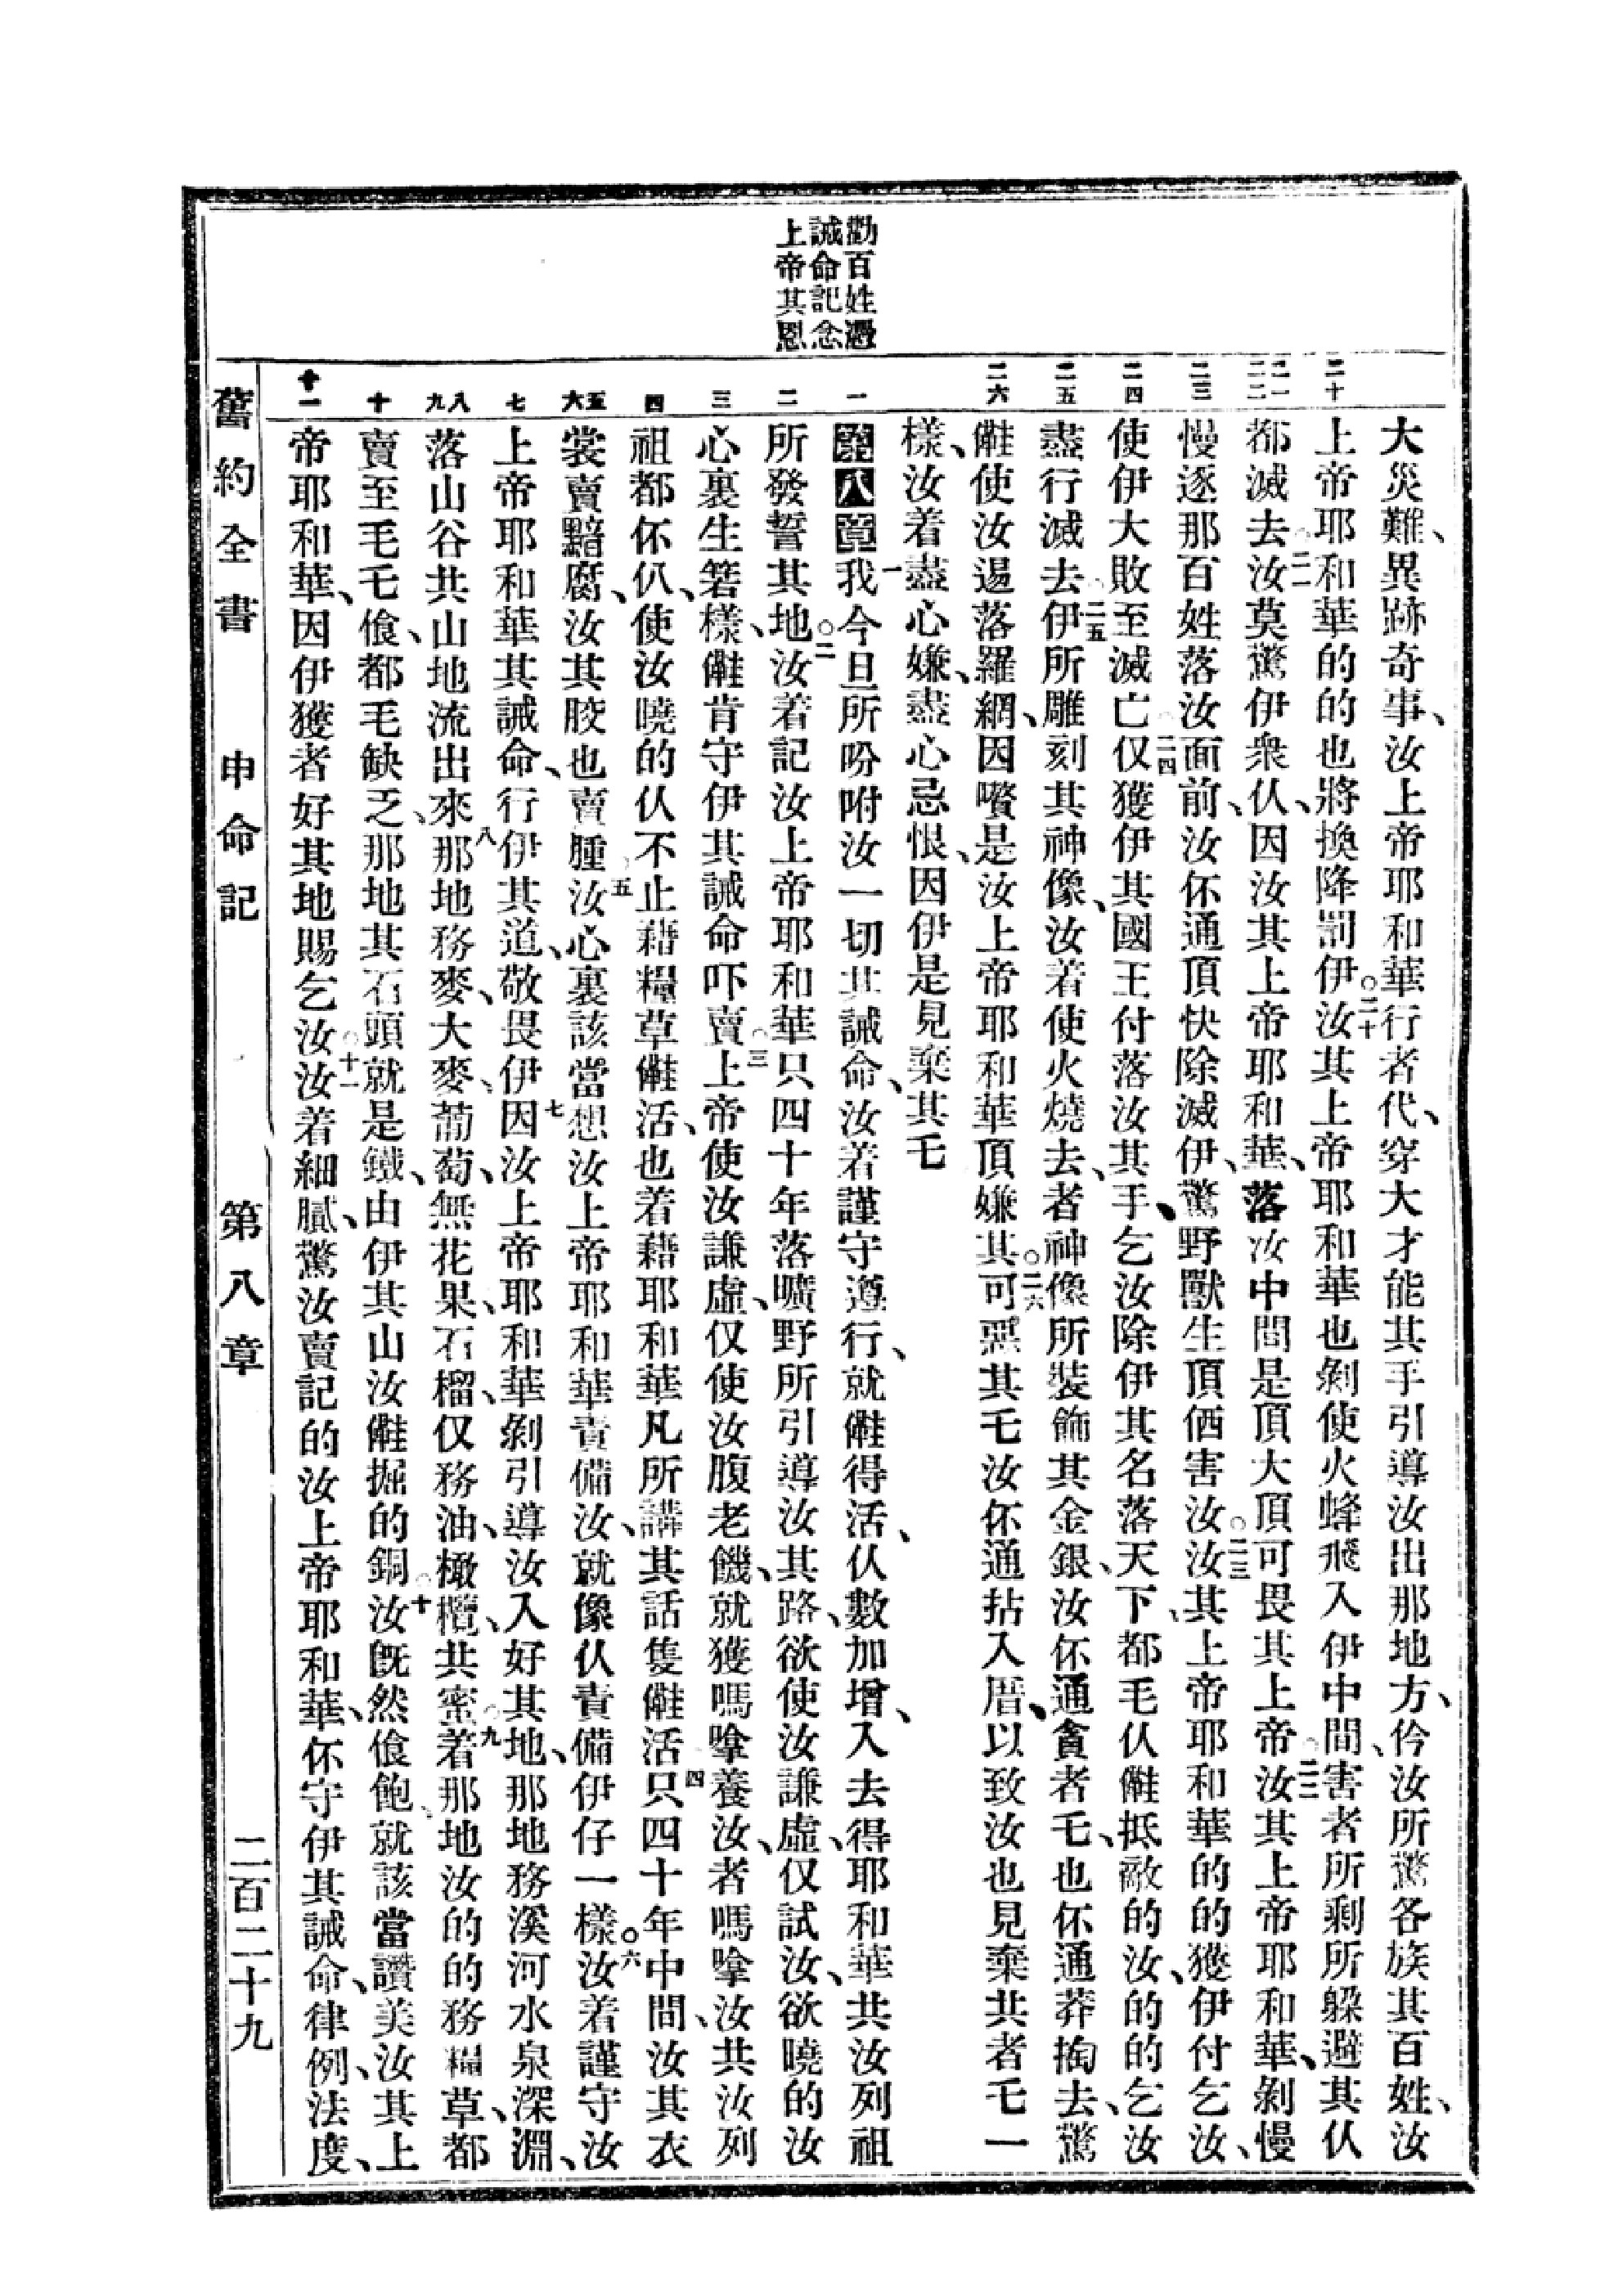 勸百姓遵
誡命記念
上帝其恩
二十
二一 二二
二三
二四
二五
二六
一
二
三
四
五 六
七
八 九
十
十一
大災難、異跡奇事、汝上帝耶和華行者代、穿大才能其手引導汝出那地方、仱汝所驚各族其百姓、汝
上帝耶和華的的也將換降罰伊○二十汝其上帝耶和華也剝使火蜂飛入伊中間、害者所剩所躱避其仈
都滅去○二一汝莫驚伊衆仈、因汝其上帝耶和華、落汝中間是頂大頂可畏其上帝○二二汝其上帝耶和華、剝慢
慢逐那百姓落汝面前、汝伓通頂快除滅伊、驚野獸生頂価害汝○二三汝其上帝耶和華的的獲伊付乞汝、
使伊大敗至滅亡○二四仅獲伊其國王付落汝其手、乞汝除伊其名落天下、都毛仈儺抵敵的汝、的的乞汝
盡行滅去○二五伊所雕刻其神像、汝着使火燒去、者神像所裝飾其金銀、汝伓通貪者乇、也伓通莽掏去、驚
儺使汝逿落羅網、因嚽是汝上帝耶和華頂嫌其○二六可惡其乇汝伓通拈入厝、以致汝也見棄共者乇一
樣、汝着盡心嫌、盡心忌恨、因伊是見棄其乇
第八章一我今旦所吩咐汝一切其誡命、汝着謹守遵行、就儺得活、仈數加增、入去得耶和華共汝列祖
所發誓其地○二汝着記汝上帝耶和華只四十年落曠野所引導汝其路、欲使汝謙虛、仅試汝、欲曉的汝
心裏生箬樣、儺肯守伊其誡命吓賣○三上帝使汝謙虛、仅使汝腹老饑、就獲嗎嗱養汝、者嗎嗱汝共汝列
祖都伓仈、使汝曉的仈不止藉糧草儺活、也着藉耶和華凡所講其話隻儺活○四只四十年中間、汝其衣
裳賣黯腐、汝其骹也賣腫○五汝心裏該當想汝上帝耶和華責備汝、就像仈責備伊仔一樣○六汝着謹守汝
上帝耶和華其誡命、行伊其道、敬畏伊○七因汝上帝耶和華剝引導汝入好其地、那地務溪河水泉深淵、
落山谷共山地流出來○八那地務麥、大麥、葡萄、無花果、石榴、仅務油、橄欖、共蜜○九着那地汝的的務糧草、都
賣至毛乇飡、都毛缺乏、那地其石頭就是鐵、由伊其山汝儺掘的銅○十汝旣然飡飽、就該當讚美汝其上
帝耶和華、因伊獲者好其地賜乞汝○十一汝着細膩、驚汝賣記的汝上帝耶和華、伓守伊其誡命、律例、法度、
舊約全書　申命記　第八章　二百二十九